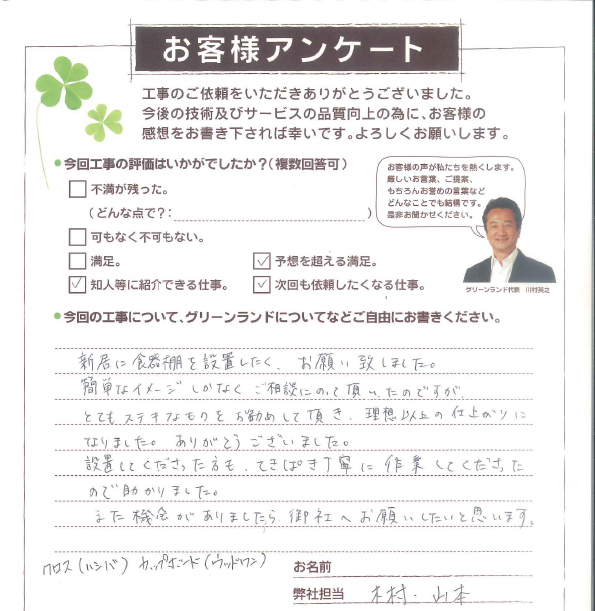 お客様アンケート
工事のご依頼をいただきありがとうございました。
今後の技術及びサービスの品質向上の為に、お客様の
感想をお書き下されば幸いです。よろしくお願いします。
●今回工事の評価はいかがでしたか？（複数回答可）
□不満が残った。
（どんな点で？：　　　　）
□可もなく不可もない。
□満足。
☑予想を超える満足。
☑知人等に紹介できる仕事。
☑次回も依頼したくなる仕事。
お客様の声が私たちを熱くします。
厳しいお言葉、ご提案、
もちろんお誉めの言葉など
どんなことでも結構です。
是非お聞かせください。
グリーンランド代表　川村英之
●今回の工事について、グリーンランドについてなどご自由にお書きください。
新居に食器棚を設置したく、お願い致しました。
簡単なイメージしかなく ご相談にのって頂いたのですが、
とても ステキなものを お勧めして頂き、理想以上の仕上がりに
なりました。ありがとうございました。
設置してくださった方も、てきぱき丁寧に 作業してくださった
ので助かりました。
また機会がありましたら 御社へお願いしたいと思います。
クロス（ルノン） カップボード（ウッドワン）
お名前
弊社担当　木村・山本